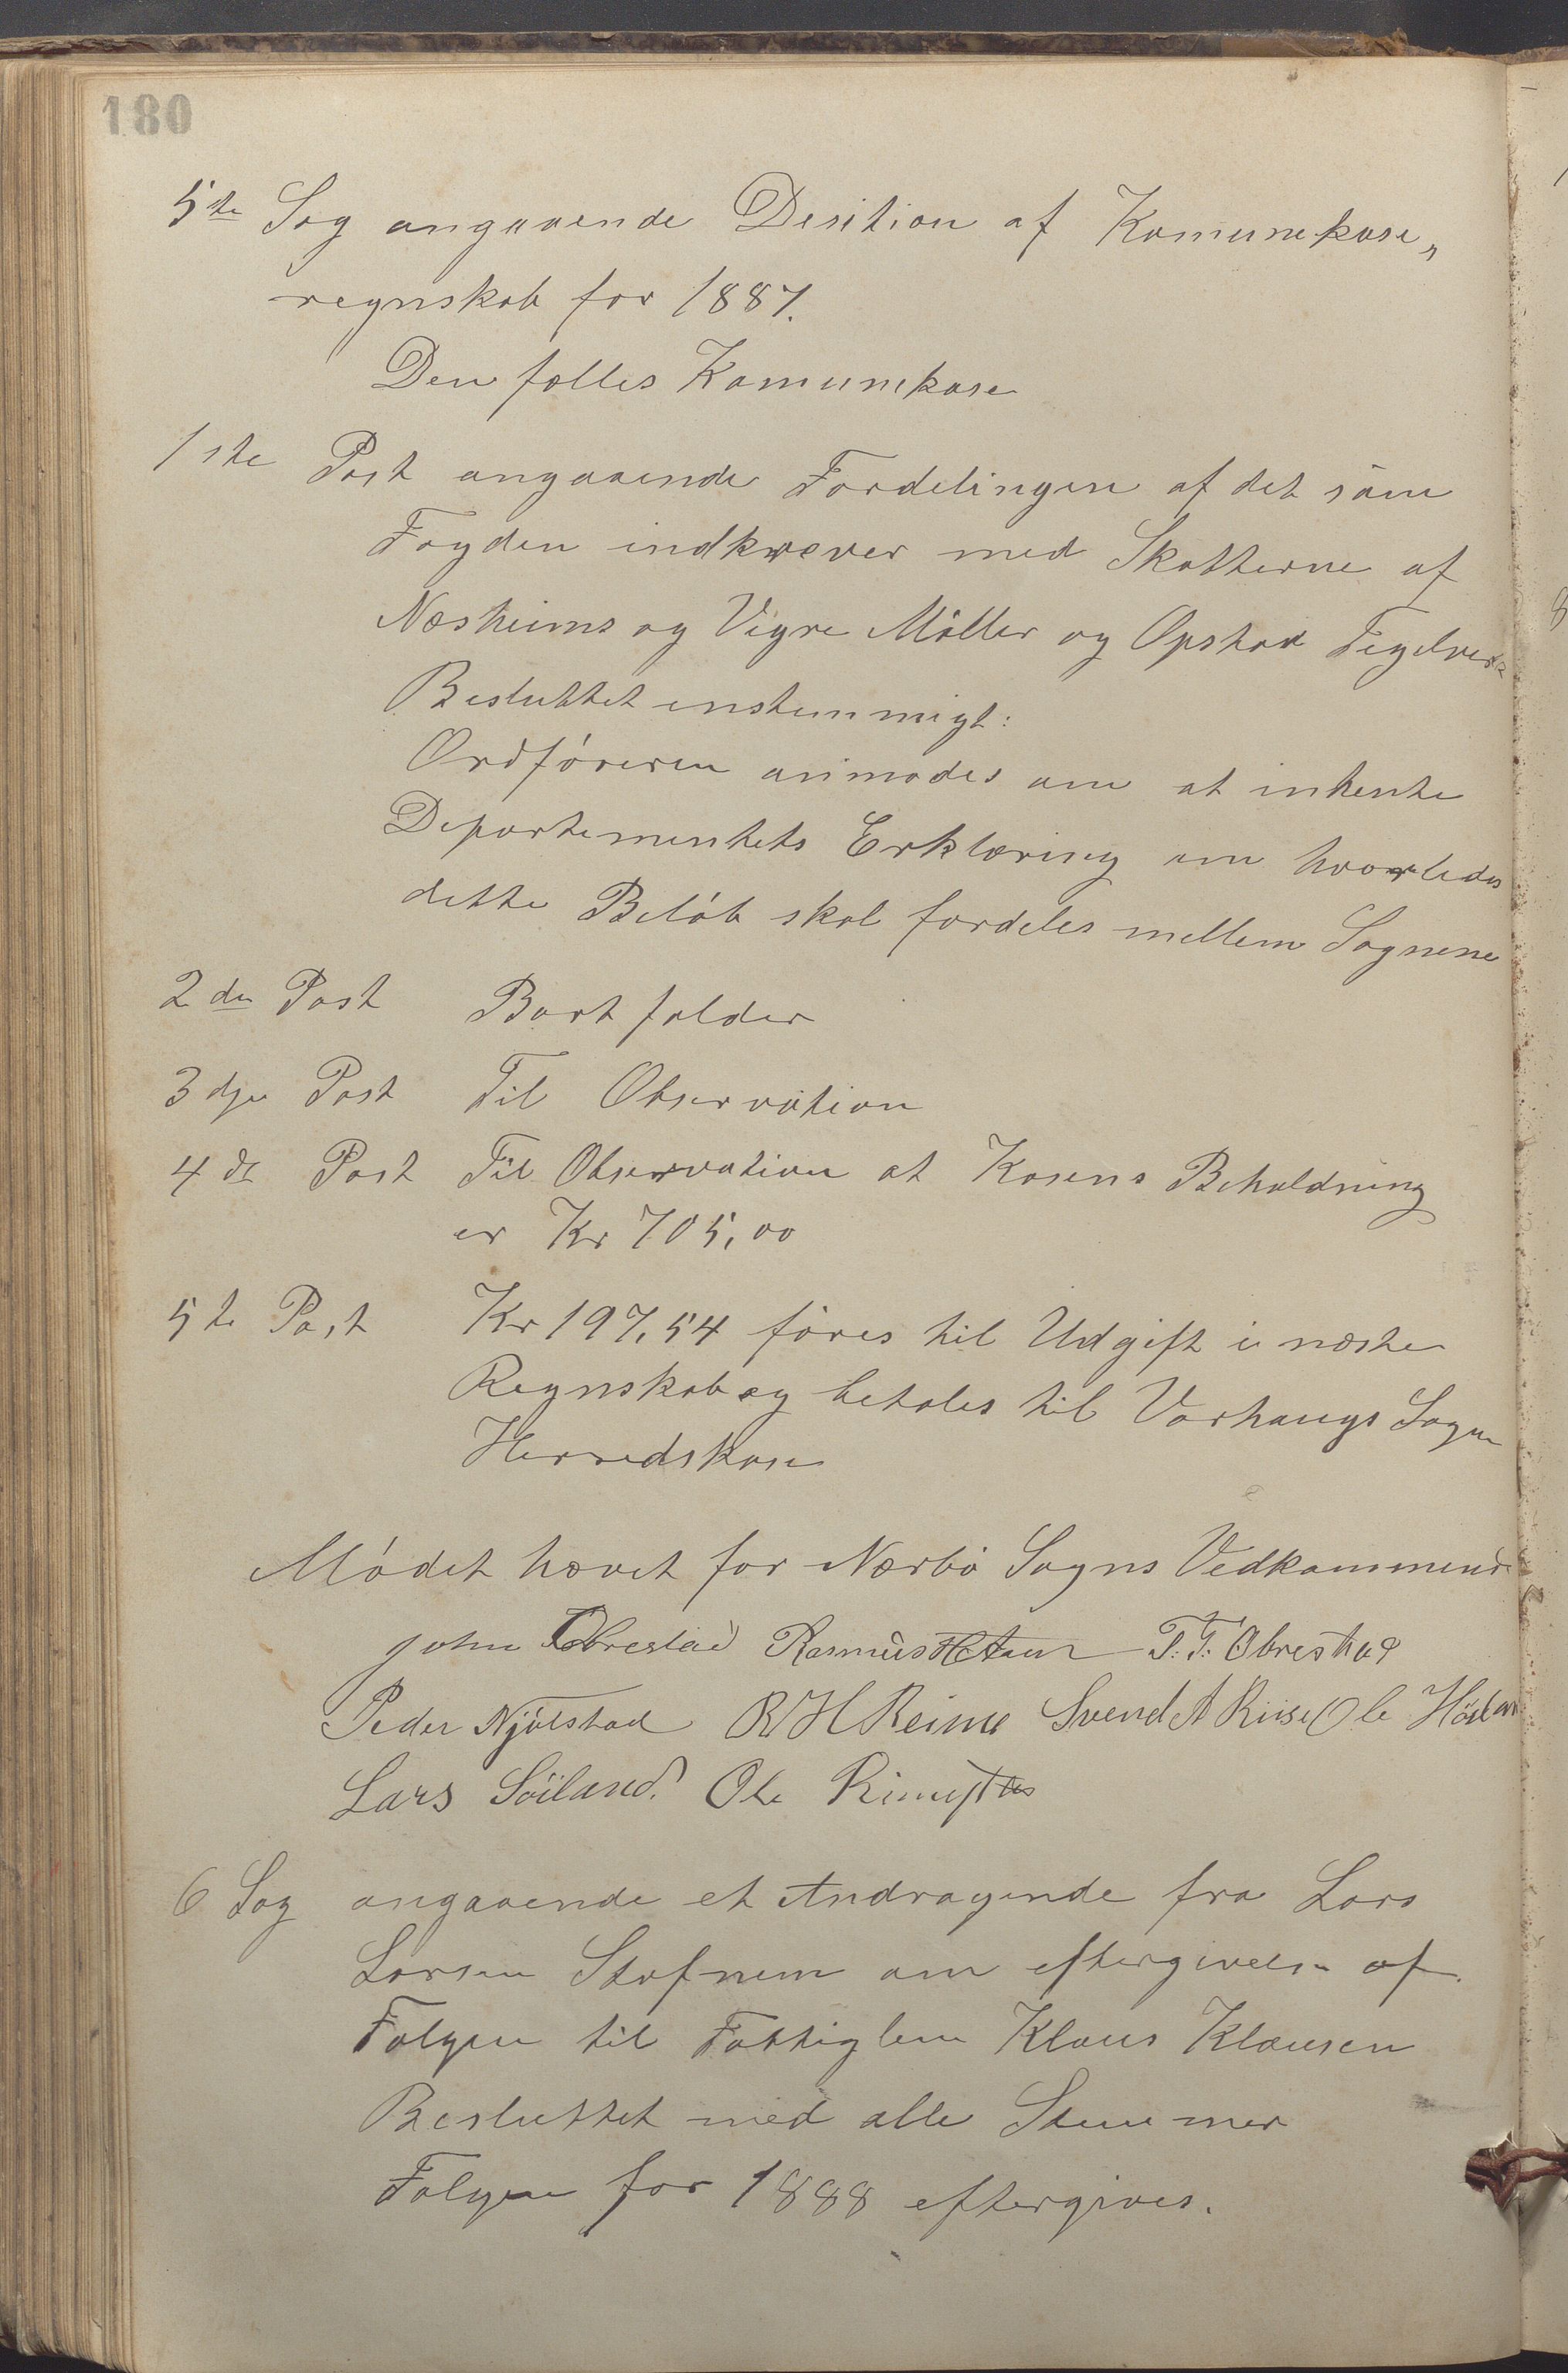 180
5te Sag angaaende Desition af Komunekase„
regnskab for 1887.
Den fælles Komunekase
1ste Post angaaende Fordelingen af det som
Fogden indkræver med Skatterne af
Næsheims og Vigre Møller og Opstad Tegelverk
Besluttet enstemmigt:
Ordføreren anmodes om at inhente
Departementets Erklæring om hvorledes
dette Beløb skal fordeles mellem Sognene
2den Post Bortfalder
3dje Post Til Observation
4de Post Til Observation at Kasens Beholdning
er Kr 705,00
5te Post Kr 197,54 føres til Udgift i næste
Regnskab og betales til Varhaugs Sogn
Herredskase
Mødet hævet for Nærbø Sogns Vedkommende
John Obrestad Rasmus T. T. Obrestad
Peder Njølstad R H Reime Svend A Riise Ole
Lars Söiland. Ole Rimestad
6 Sag angaaende et Andragende fra Lars
Larsen Stafnem om eftergivelse af
Følgen til Fattiglem Klaus Klausen
Besluttet med alle Stemmer
Følgen for 1888 eftergives.